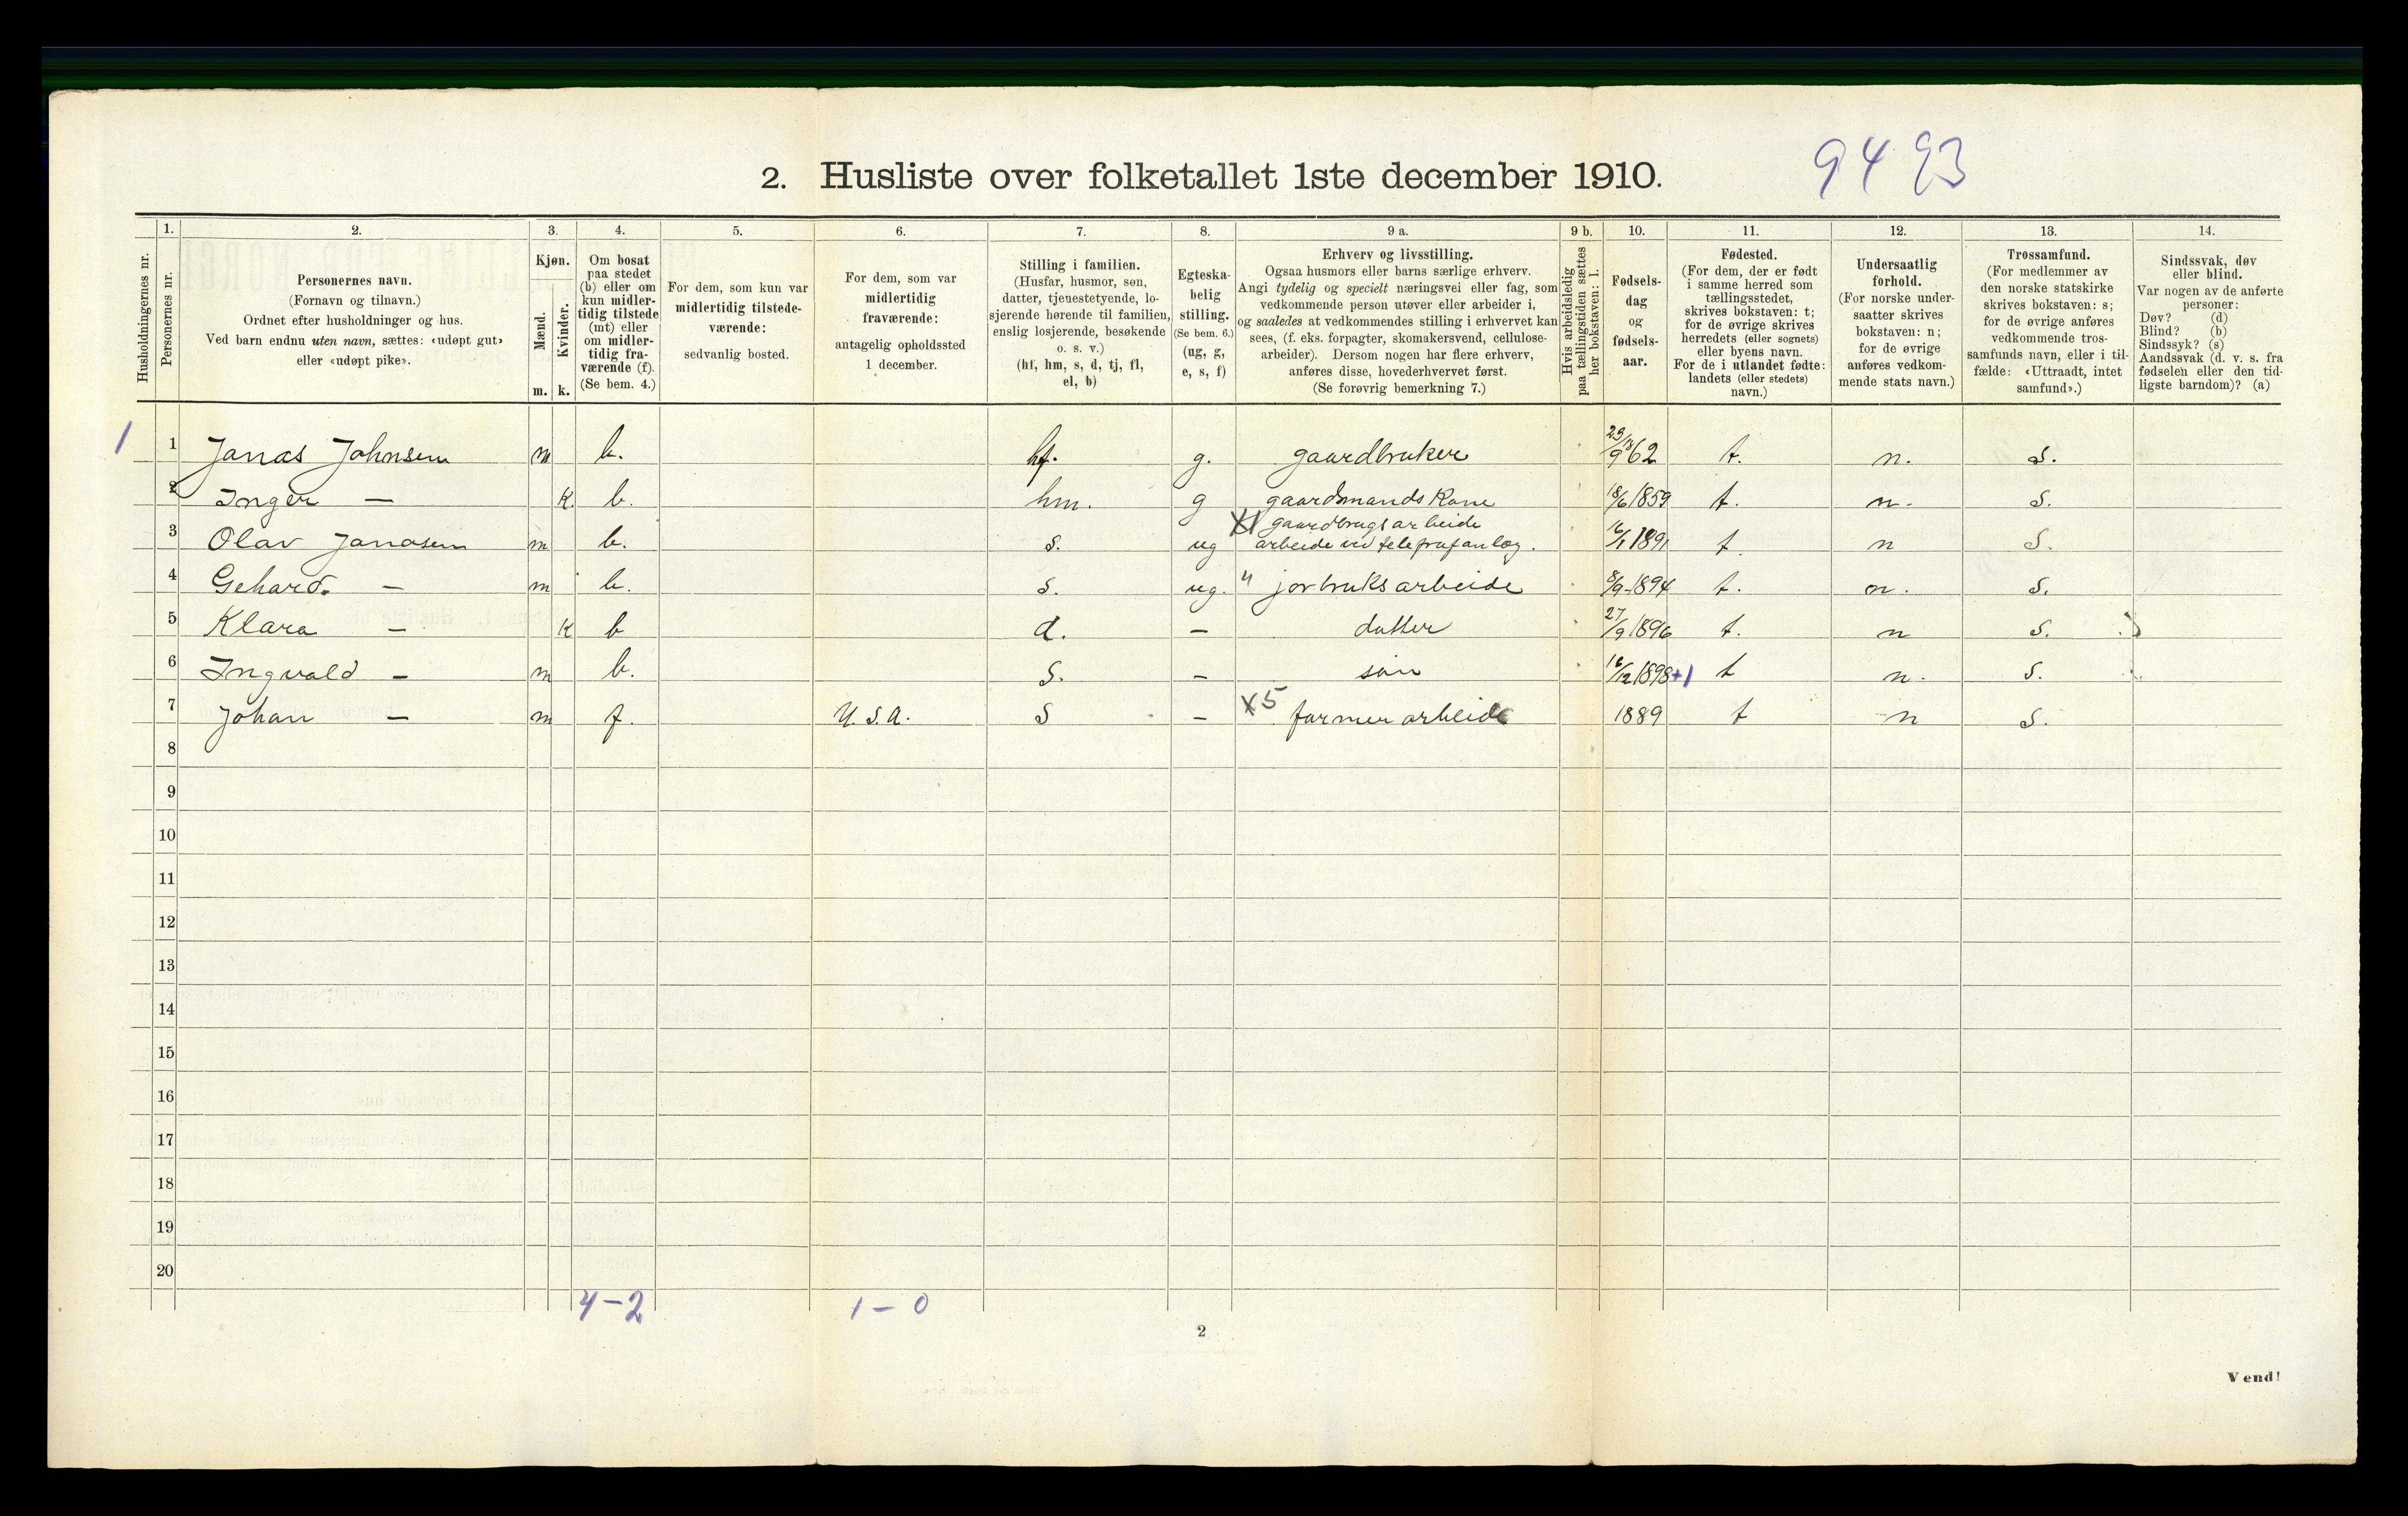 94 93
2. Husliste over folketallet 1ste december 1910.
Husholdningernes nr.
1.
Personernes nr.
2.
Personernes navn.
(Fornavn og tilnavn.)
Ordnet efter husholdninger og hus.
Ved barn endnu uten navn, sættes: «udøpt gut»
eller «udøpt pike».
3.
Kjøn.
Mænd.
m.
Kvinder.
k.
4.
Om bosat
paa stedet
(b) eller om
kun midler-
tidig tilstede
(mt) eller
om midler-
tidig fra-
værende (f).
(Se bem. 4.)
5.
For dem, som kun var
midlertidig tilstede-
værende:
sedvanlig bosted.
6.
For dem, som var
midlertidig
fraværende:
antagelig opholdssted
1 december.
7.
Stilling i familien.
(Husfar, husmor, søn,
datter, tjenestetyende, lo-
sjerende hørende til familien,
enslig losjerende, besøkende
o. s. v.)
(hf, hm, s, d, tj, fl,
el, b)
8.
Egteska-
belig
stilling.
(Se bem. 6.)
(ug, g,
e, s, f)
9 a.
Erhverv og livsstilling.
Ogsaa husmors eller barns særlige erhverv.
Angi tydelig og specielt næringsvei eller fag, som
vedkommende person utøver eller arbeider i,
og saaledes at vedkommendes stilling i erhvervet kan
sees, (f. eks. forpagter, skomakersvend, cellulose-
arbeider). Dersom nogen har flere erhverv,
anføres disse, hovederhvervet først.
(Se forøvrig bemerkning 7.)
9 b.
Hvis arbeidsledig
paa tællingstiden sættes
her bokstaven: l.
10.
Fødsels-
dag
og
fødsels-
aar.
11.
Fødested.
(For dem, der er født
i samme herred som
tællingsstedet,
skrives bokstaven: t;
for de øvrige skrives
herredets (eller sognets)
eller byens navn.
For de i utlandet fødte:
landets (eller stedets)
navn.)
12.
Undersaatlig
forhold.
(For norske under-
saatter skrives
bokstaven: n;
for de øvrige
anføres vedkom-
mende stats navn.)
13.
Trossamfund.
(For medlemmer av
den norske statskirke
skrives bokstaven: s;
for de øvrige anføres
vedkommende tros-
samfunds navn, eller i til-
fælde: «Uttraadt, intet
samfund».)
14.
Sindssvak, døv
eller blind.
Var nogen av de anførte
personer:
Døv? (d)
Blind? (b)
Sindssyk? (s)
Aandssvak (d. v. s. fra
fødselen eller den tid-
ligste barndom)? (a)
1 1 Jonas Johnsen m b. hf. g. gaardbruker 62 t. n. s.
2 Inger — k. b. hm. g gaardmands Kone 18/6 1859 t. n. s.
3 Olav Jonasen m b. s. ug X1 gaardbrugsarbeide
arbeide ved telegrafanlæg. 16/1 1891 t. n s.
4 Gehard. — m b. s. ug. " jorbruksarbeide 8/9 1894 t. n. s.
5 Klara — k b d. — datter 27/9 1896 t. n s.
6 Ingvald — m b. s. — søn 16/12 1898 +1 t n. s.
7 Johan — m f. U. S. A. s — X5 farmerarbeide 1889 t n s.
8
9
10
11
12
13
14
15
16
17
18
19
20
4 — 2 1 — 0
2
Vend!